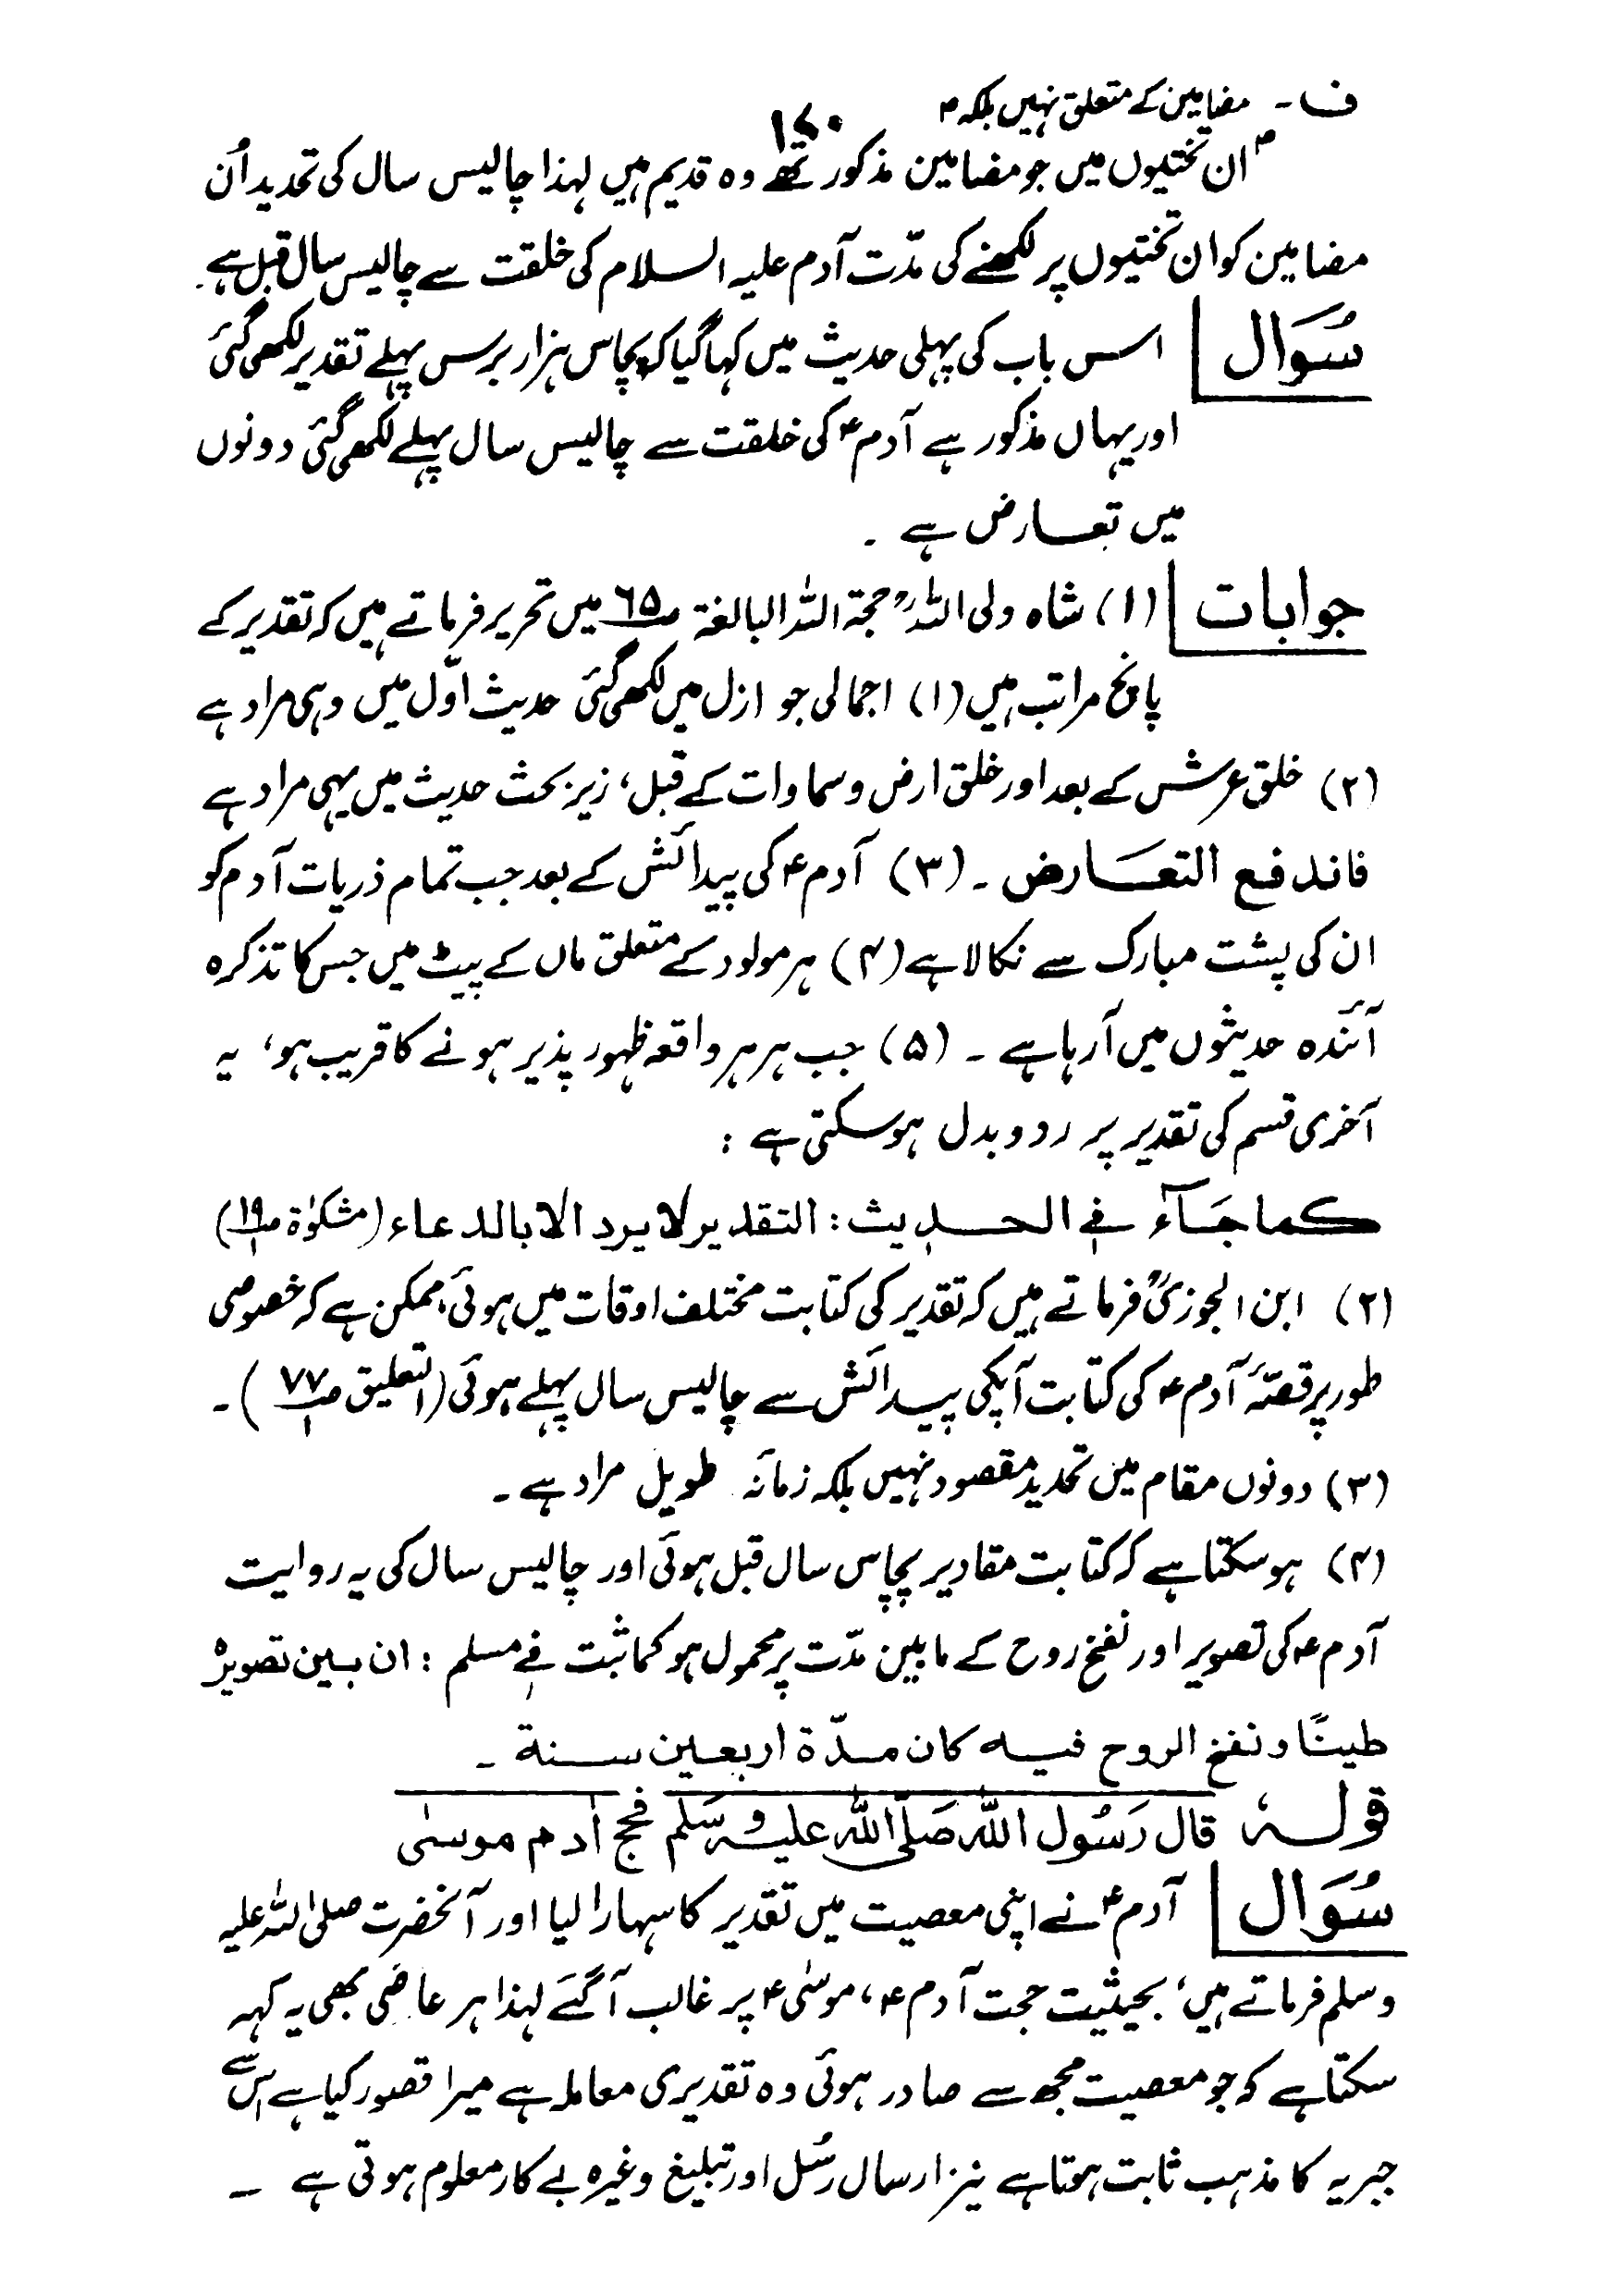 ف ۔ مضامین کے متعلق نہیں بلکہ ۳
۱۷۰
۳ ان تختیوں میں جو مضامین مذکور تھے وہ قدیم ہیں لہذا چالیس سال کی تحدید اُن
مضامین کو ان تختیوں پر لکھنے کی مدّت آدم علیہ السلام کی خلقت سے چالیس سال قبل ہے ۔
سُوَال اس باب کی پہلی حدیث میں کہا گیا کہ پچاس ہزار برس پہلے تقدیر لکھی گئی
اور یہاں مذکور ہے آدم ؑ کی خلقت سے چالیس سال پہلے لکھی گئی دونوں
میں تعارض ہے ۔
جوابات (۱) شاہ ولی اللہؒ حجۃ اللہ البالغۃ صـ۶۵ میں تحریر فرماتے ہیں کہ تقدیر کے
پانچ مراتب ہیں (۱) اجمالی جو ازل میں لکھی گئی حدیث اوّل میں وہی مراد ہے
(۲) خلق عرش کے بعد اور خلق ارض وسماوات کے قبل، زیر بحث حدیث میں یہی مراد ہے
فاندفع التعَارض ۔ (۳) آدم ؑ کی پیدائش کے بعد جب تمام ذریات آدم کو
ان کی پشت مبارک سے نکالا ہے (۴) ہر مولود کے متعلق ماں کے پیٹ میں جس کا تذکرہ
آئندہ حدیثوں میں آرہا ہے ۔ (۵) جب ہر ہر واقعہ ظہور پذیر ہونے کا قریب ہو، یہ
آخری قسم کی تقدیر پر ردوبدل ہوسکتی ہے :
کما جَآء فی الحدیث : التقدیر لا یرد الا بالدعاء (مشکوٰۃ صـ۱۹)
(۲) ابن الجوزیؒ فرماتے ہیں کہ تقدیر کی کتابت مختلف اوقات میں ہوئی، ممکن ہے کہ خصوصی
طور پر قصّۂ آدم ؑ کی کتابت آپکی پیدائش سے چالیس سال پہلے ہوئی (التعلیق صـ۷۷/۱) ۔
(۳) دونوں مقام میں تحدید مقصود نہیں بلکہ زمانہ طویل مراد ہے ۔
(۴) ہوسکتا ہے کہ کتابت مقادیر پچاس سال قبل ہوئی اور چالیس سال کی یہ روایت
آدم ؑ کی تصویر اور نفخ روح کے مابین مدّت پر محمول ہو کما ثبت فی مسلم : ان بین تصویرہٖ
طینًا ونفخ الروح فیہ کان مدّۃ اربعین سنۃ ۔
قولہٗ قال رَسُول اللہ صَلَّی اللہ علیہ وَسَلّم فحج اٰدم موسٰی
سُوَال آدم ؑ نے اپنی معصیت میں تقدیر کا سہارا لیا اور آنحضرت صلی اللہ علیہ
وسلم فرماتے ہیں، بحیثیت حجت آدم ؑ، موسٰی ؑ پر غالب آگئے لہذا ہر عاصی بھی یہ کہہ
سکتا ہے کہ جو معصیت مجھ سے صادر ہوئی وہ تقدیری معاملہ ہے میرا قصور کیا ہے اس سے
جبریہ کا مذہب ثابت ہوتا ہے نیز ارسال رسُل اور تبلیغ وغیرہ بے کار معلوم ہوتی ہے ۔